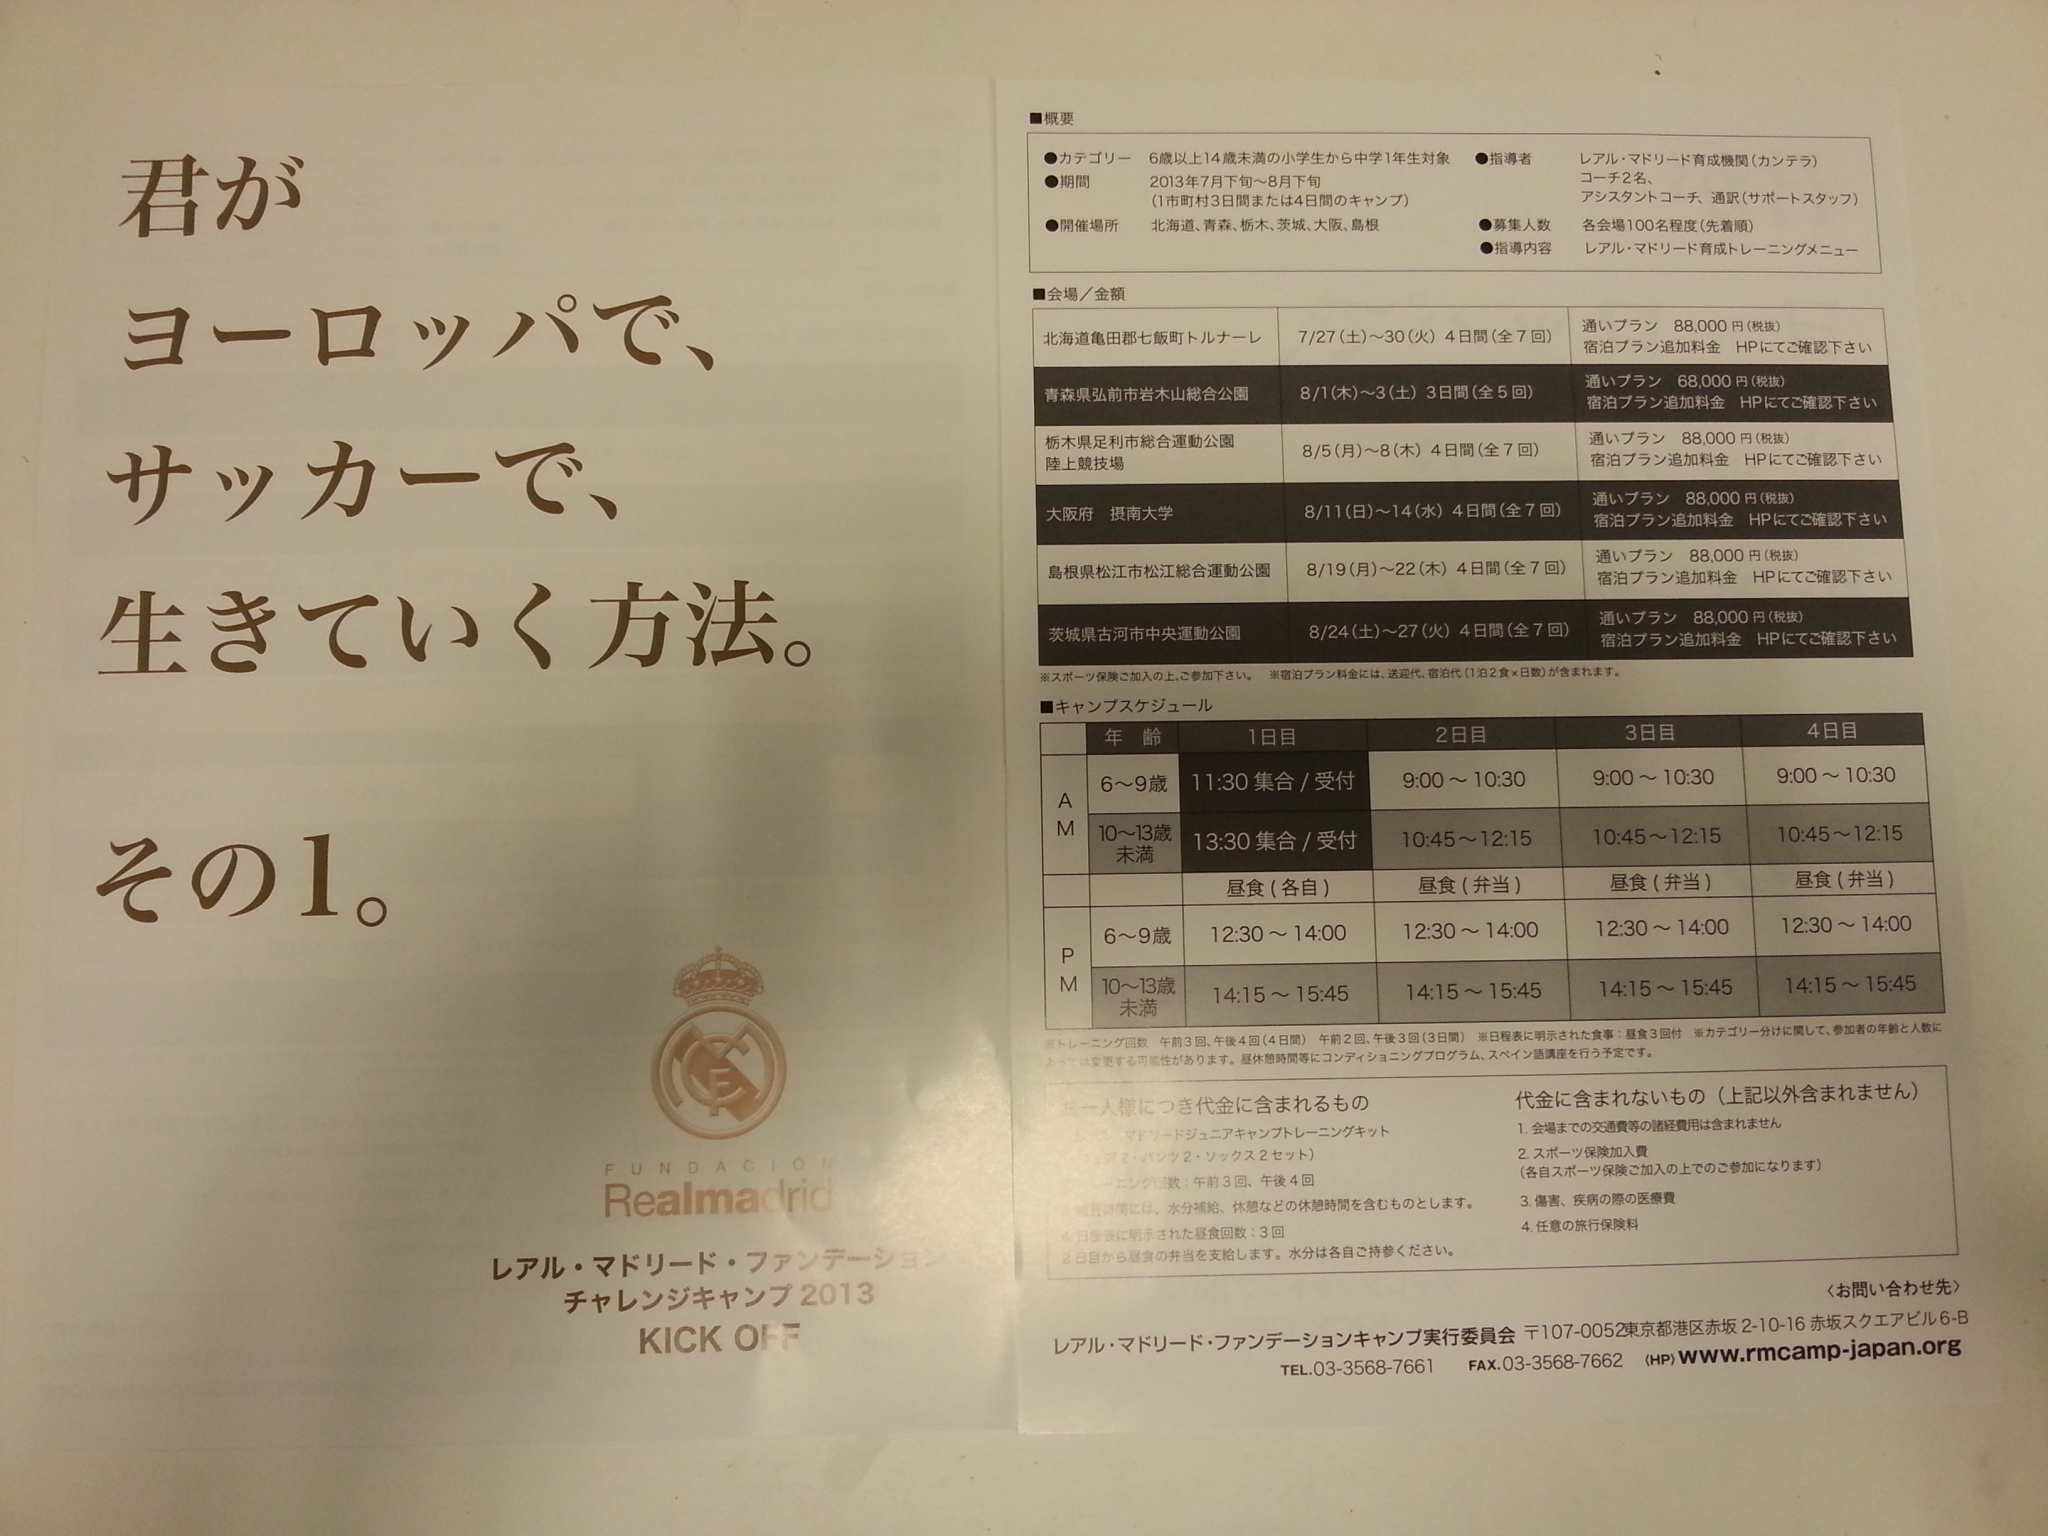 君が
ヨーロッパで、
サッカーで、
生きていく方法。
その1。
FUNDACIÓN
Realmadrid
レアル・マドリード・ファンデーション
チャレンジキャンプ 2013
KICK OFF
■概要
●カテゴリー 6歳以上14歳未満の小学生から中学1年生対象
●期間 2013年7月下旬〜8月下旬
（1市町村3日間または4日間のキャンプ）
●開催場所 北海道、青森、栃木、茨城、大阪、島根
●指導者 レアル・マドリード育成機関（カンテラ）
コーチ2名、
アシスタントコーチ、通訳（サポートスタッフ）
●募集人数 各会場100名程度（先着順）
●指導内容 レアル・マドリード育成トレーニングメニュー
■会場／金額
北海道亀田郡七飯町トルナーレ 7/27（土）〜30（火） 4日間（全7回） 通いプラン 88,000円（税抜）
宿泊プラン追加料金 HPにてご確認下さい
青森県弘前市岩木山総合公園 8/1（木）〜3（土） 3日間（全5回） 通いプラン 68,000円（税抜）
宿泊プラン追加料金 HPにてご確認下さい
栃木県足利市総合運動公園
陸上競技場 8/5（月）〜8（木） 4日間（全7回） 通いプラン 88,000円（税抜）
宿泊プラン追加料金 HPにてご確認下さい
大阪府 摂南大学 8/11（日）〜14（水） 4日間（全7回） 通いプラン 88,000円（税抜）
宿泊プラン追加料金 HPにてご確認下さい
島根県松江市松江総合運動公園 8/19（月）〜22（木） 4日間（全7回） 通いプラン 88,000円（税抜）
宿泊プラン追加料金 HPにてご確認下さい
茨城県古河市中央運動公園 8/24（土）〜27（火） 4日間（全7回） 通いプラン 88,000円（税抜）
宿泊プラン追加料金 HPにてご確認下さい
※スポーツ保険ご加入の上、ご参加下さい。 ※宿泊プラン料金には、送迎代、宿泊代（1泊2食×日数）が含まれます。
■キャンプスケジュール
年 齢 1日目 2日目 3日目 4日目
AM
6〜9歳 11:30 集合 / 受付 9:00 〜 10:30 9:00 〜 10:30 9:00 〜 10:30
10〜13歳未満 13:30 集合 / 受付 10:45〜12:15 10:45〜12:15 10:45〜12:15
昼食（各自） 昼食（弁当） 昼食（弁当） 昼食（弁当）
PM
6〜9歳 12:30 〜 14:00 12:30 〜 14:00 12:30 〜 14:00 12:30 〜 14:00
10〜13歳未満 14:15 〜 15:45 14:15 〜 15:45 14:15 〜 15:45 14:15 〜 15:45
※トレーニング回数 午前3回、午後4回（4日間） 午前2回、午後3回（3日間） ※日程表に明示された食事：昼食3回付 ※カテゴリー分けに関して、参加者の年齢と人数に
よっては変更する可能性があります。昼休憩時間等にコンディショニングプログラム、スペイン語講座を行う予定です。
お一人様につき代金に含まれるもの
レアル・マドリードジュニアキャンプトレーニングキット
2・パンツ2・ソックス2セット）
トレーニング回数：午前3回、午後4回
時間には、水分補給、休憩などの休憩時間を含むものとします。
4. 日程表に明示された昼食回数：3回
2日目から昼食の弁当を支給します。水分は各自ご持参ください。
代金に含まれないもの（上記以外含まれません）
1. 会場までの交通費等の諸経費用は含まれません
2. スポーツ保険加入費
（各自スポーツ保険ご加入の上でのご参加になります）
3. 傷害、疾病の際の医療費
4. 任意の旅行保険料
〈お問い合わせ先〉
レアル・マドリード・ファンデーションキャンプ実行委員会 〒107-0052東京都港区赤坂 2-10-16 赤坂スクエアビル6-B
TEL.03-3568-7661 FAX.03-3568-7662 （HP）www.rmcamp-japan.org